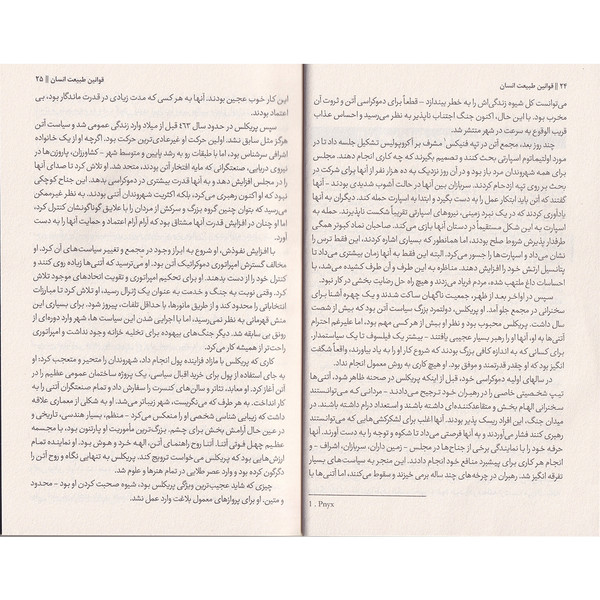 ۲۴ || قوانین طبیعت انسان
می‌توانست کل شیوه زندگی‌اش را به خطر بیندازد - قطعاً برای دموکراسی آتن و ثروت آن
مخرب بود. با این حال، اکنون جنگ اجتناب ناپذیر به نظر می‌رسید و احساس عذاب
قریب الوقوع به سرعت در شهر منتشر شد.
چند روز بعد، مجمع آتن در تپه فنیکس۱ مشرف بر آکروپولیس تشکیل جلسه داد تا در
مورد اولتیماتوم اسپارتی بحث کنند و تصمیم بگیرند که چه کاری انجام دهند. مجلس
برای همه شهروندان مرد باز بود و در آن روز نزدیک به ده هزار نفر از آنها برای شرکت در
بحث بر روی تپه ازدحام کردند. سربازان بین آنها در حالت آشوب شدیدی بودند - آنها
گفتند که آتن باید ابتکار عمل را به دست بگیرد و ابتدا به اسپارت حمله کند. دیگران به آنها
یادآوری کردند که در یک نبرد زمینی، نیروهای اسپارتی تقریباً شکست ناپذیرند. حمله به
اسپارت به این شکل مستقیماً در دستان آنها بازی می‌کند. صاحبان نماد کبوتر همگی
طرفدار پذیرش شروط صلح بودند، اما همانطور که بسیاری اشاره کردند، این فقط ترس را
نشان می‌داد و اسپارت‌ها را جسور می‌کرد. البته این فقط به آنها زمان بیشتری می‌داد تا
پتانسیل ارتش خود را افزایش دهند. مناظره به این طرف و آن طرف کشیده می‌شد، با
احساسات داغ ملتهب شده، مردم فریاد می‌زدند و هیچ راه حل رضایت بخشی در کار نبود.
سپس در اواخر بعد از ظهر، جمعیت ناگهان ساکت شدند و یک چهره آشنا برای
سخنرانی در مجمع جلو آمد. او پریکلس، دولتمرد بزرگ سیاست آتن بود که بیش از شصت
سال داشت. پریکلس محبوب بود و نظر او بیش از هر کسی مهم بود، اما علیرغم احترام
آتنی‌ها به او، آنها او را رهبر بسیار عجیبی یافتند - بیشتر یک فیلسوف تا یک سیاستمدار.
برای کسانی که به اندازه کافی بزرگ بودند که شروع کار او را به یاد بیاورند، واقعاً شگفت
انگیز بود که او چقدر قدرتمند و موفق بود. او هیچ کاری به روش معمول انجام نداد.
در سالهای اولیه دموکراسی خود، قبل از اینکه پریکلس در صحنه ظاهر شود، آتنی‌ها
تیپ شخصیتی خاصی را در رهبران خود ترجیح می‌دادند - مردانی که می‌توانستند
سخنرانی الهام بخش و متقاعدکننده‌ای داشته باشند و استعداد درام داشته باشند. در
میدان جنگ، این افراد ریسک پذیر بودند. آنها اغلب برای لشکرکشی‌هایی که می‌توانستند
رهبری کنند فشار می‌آوردند و به آنها فرصتی می‌داد تا شکوه و توجه را به دست آورند. آنها
حرفه خود را با نمایندگی برخی از جناح‌ها در مجلس - زمین داران، سربازان، اشراف - و
انجام هر کاری برای پیشبرد منافع خود انجام دادند. این منجر به سیاست‌های بسیار
تفرقه انگیز شد. رهبران در چرخه‌های چند ساله برمی خیزند و سقوط می‌کنند، اما آتنی‌ها با
1 . Pnyx
قوانین طبیعت انسان || ۲۵
این کار خوب عجین بودند. آنها به هر کسی که مدت زیادی در قدرت ماندگار بود، بی
اعتماد بودند.
سپس پریکلس در حدود سال ۴۶۳ قبل از میلاد وارد زندگی عمومی شد و سیاست آتن
هرگز مثل سابق نشد. اولین حرکت او غیرعادی‌ترین حرکت بود. اگرچه او از یک خانواده
اشرافی سرشناس بود، اما با طبقات رو به رشد پایین و متوسط شهر - کشاورزان، پاروزن‌ها در
نیروی دریایی، صنعتگرانی که مایه افتخار آتن بودند، متحد شد. او تلاش کرد تا صدای آنها
را در مجلس افزایش دهد و به آنها قدرت بیشتری در دموکراسی بدهد. این جناح کوچکی
نبود که او اکنون رهبری می‌کرد، بلکه اکثریت شهروندان آتنی بودند. به نظر غیرممکن
می‌رسید که بتوان چنین گروه بزرگ و سرکش از مردان را با علایق گوناگونشان کنترل کرد،
اما او چنان در افزایش قدرت آنها مشتاق بود که آرام آرام اعتماد و حمایت آنها را به دست
آورد.
با افزایش نفوذش، او شروع به ابراز وجود در مجمع و تغییر سیاست‌های آن کرد. او
مخالف گسترش امپراتوری دموکراتیک آتن بود. او می‌ترسید که آتنی‌ها زیاده روی کنند و
کنترل خود را از دست بدهند. او برای تحکیم امپراتوری و تقویت اتحادهای موجود تلاش
کرد. وقتی نوبت به جنگ و خدمت به عنوان یک ژنرال رسید، او تلاش کرد تا مبارزات
انتخاباتی را محدود کند و از طریق مانورها، با حداقل تلفات، پیروز شود. برای بسیاری این
منش قهرمانی به نظر نمی‌رسید، اما با اجرایی شدن این سیاست‌ها، شهر وارد دوره‌ای از
رونق بی سابقه شد. دیگر جنگ‌های بیهوده برای تخلیه خزانه وجود نداشت و امپراتوری
راحت‌تر از همیشه کار می‌کرد.
کاری که پریکلس با مازاد فزاینده پول انجام داد، شهروندان را متحیر و متعجب کرد: او
به جای استفاده از پول برای خرید اقبال سیاسی، یک پروژه ساختمان عمومی عظیم را در
آتن آغاز کرد. او معابد، تئاتر و سالن‌های کنسرت را سفارش داد و تمام صنعتگران آتنی را به
کار انداخت. به هر طرف که می‌نگریست، شهر زیباتر می‌شد. او به شکلی از معماری علاقه
داشت که زیبایی شناسی شخصی او را منعکس می‌کرد - منظم، بسیار هندسی، تاریخی و
در عین حال آرامش بخش برای چشم. بزرگ‌ترین مأموریت او پارتنون بود، با مجسمه
عظیم چهل فوتی آتنا. آتنا روح راهنمای آتن، الهه خرد و هوش بود. او نماینده تمام
ارزش‌هایی بود که پریکلس می‌خواست ترویج کند. پریکلس به تنهایی نگاه و روح آتن را
دگرگون کرده بود و وارد عصر طلایی در تمام هنرها و علوم شد.
چیزی که شاید عجیب‌ترین ویژگی پریکلس بود، شیوه صحبت کردن او بود - محدود
و متین. او برای پروازهای معمول بلاغت وارد عمل نشد.